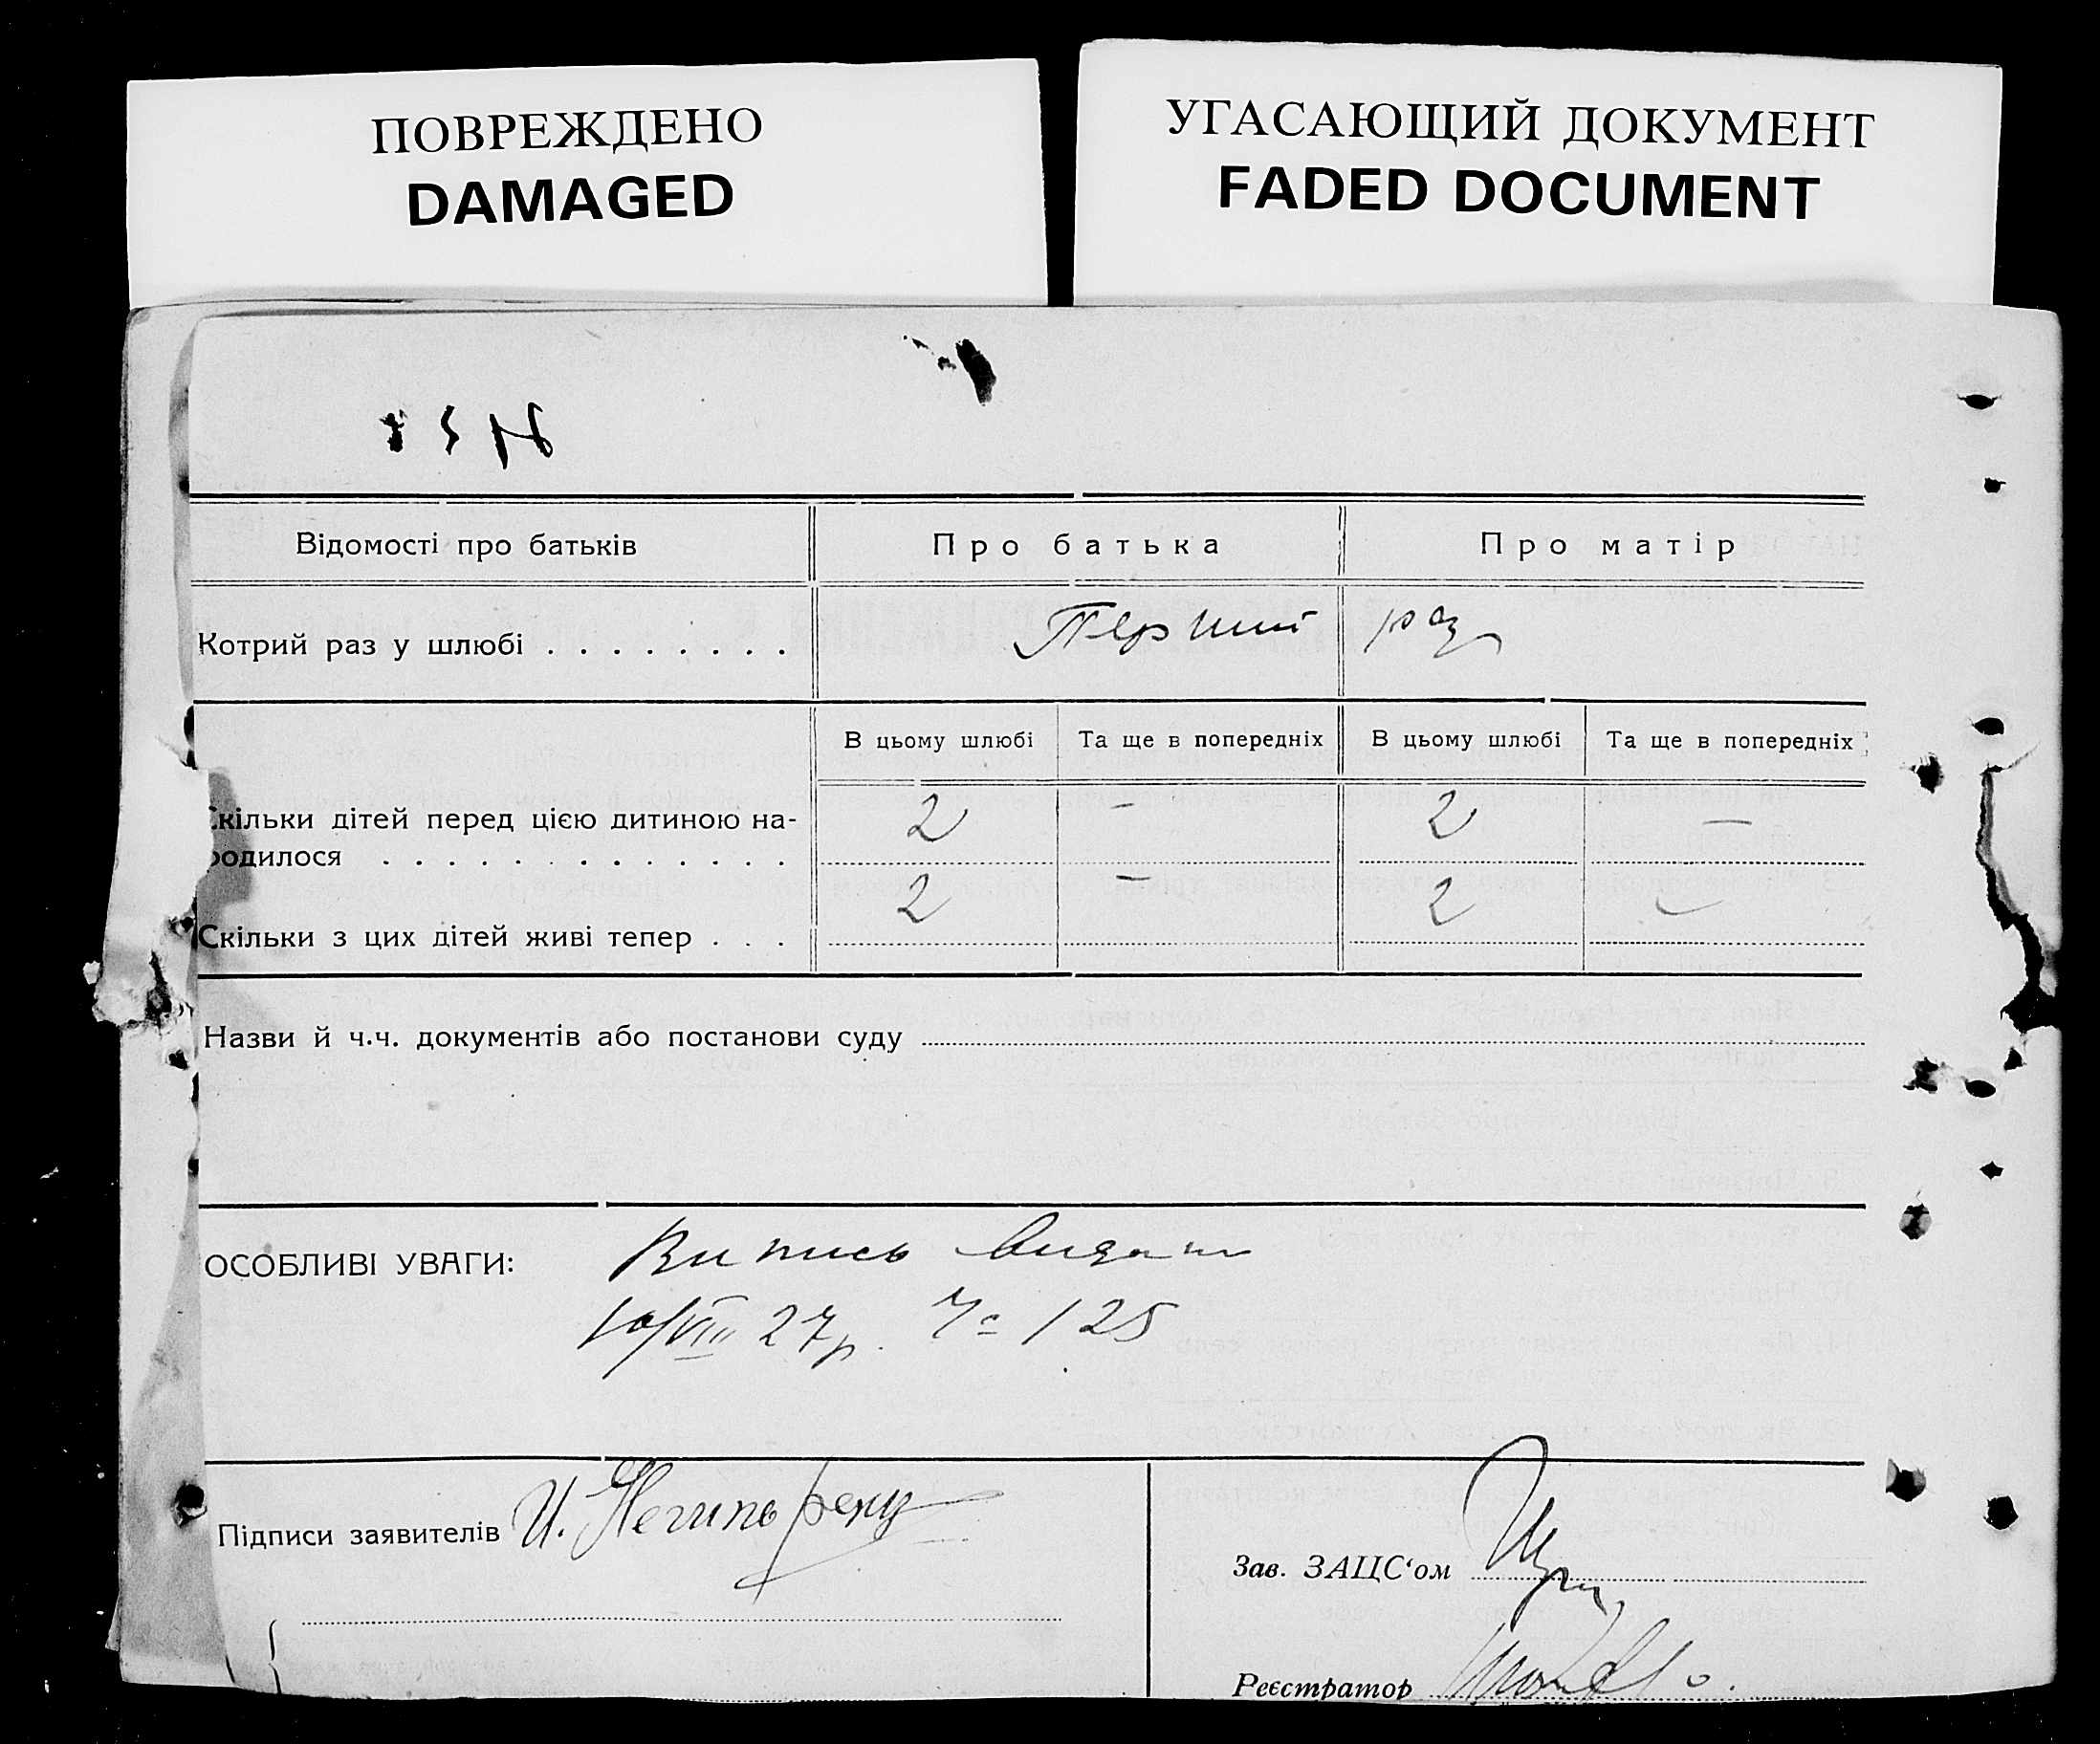 ПОВРЕЖДЕНО
DAMAGED
УГАСАЮЩИЙ ДОКУМЕНТ
FADED DOCUMENT
Відомості про батьків Про батька Про матір
Котрий раз у шлюбі . . . . . . . . Перший раз
В цьому шлюбі Та ще в попередніх В цьому шлюбі Та ще в попередніх
Скільки дітей перед цією дитиною на-
родилося . . . . . . . . . . . . . 2 — 2 —
Скільки з цих дітей живі тепер . . . 2 — 2 —
Назви й ч.ч. документів або постанови суду
ОСОБЛИВІ УВАГИ: Випись видана
10/VIII 27р. Чс 125
Підписи заявителів И.
Зав. ЗАЦС‘ом
Реєстратор